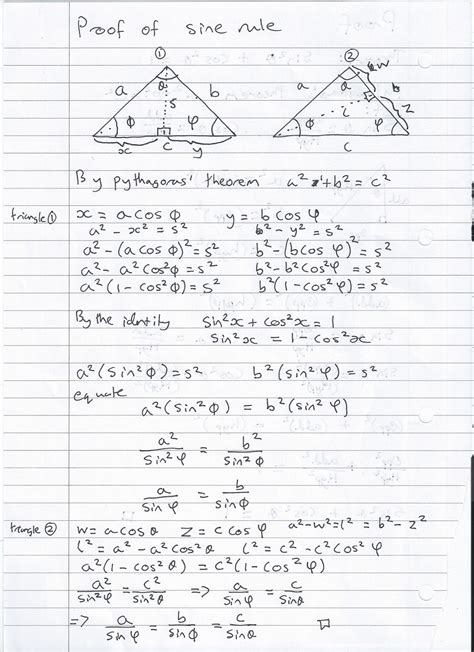 Proof of sine rule
① ②
a θ b s φ φ x c y
a θ w b z l φ φ c
By pythagoras' theorem a² + b² = c²
triangle ① x = a cos φ y = b cos φ
a² - x² = s² b² - y² = s²
a² - (a cos φ)² = s² b² - (b cos φ)² = s²
a² - a² cos² φ = s² b² - b² cos² φ = s²
a² (1 - cos² φ) = s² b² (1 - cos² φ) = s²
By the identity sin² x + cos² x = 1
sin² x = 1 - cos² x
a² (sin² φ) = s² b² (sin² φ) = s²
equate
a² (sin² φ) = b² (sin² φ)
a² / sin² φ = b² / sin² φ
a / sin φ = b / sin φ
triangle ② w = a cos θ z = c cos φ a² - w² = l² = b² - z²
l² = a² - a² cos² θ l² = c² - c² cos² φ
a² (1 - cos² θ) = c² (1 - cos² φ)
a² / sin² φ = c² / sin² θ ⇒ a / sin φ = c / sin θ
⇒ a / sin φ = b / sin φ = c / sin θ □